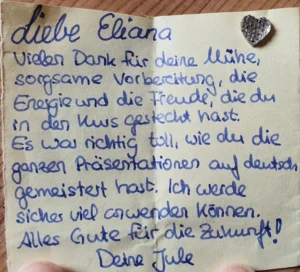 Liebe Eliana
Vielen Dank für deine Mühe,
sorgsame Vorbereitung, die
Energie und die Freude, die du
in den Kurs gesteckt hast.
Es war richtig toll, wie du die
ganzen Präsentationen auf deutsch
gemeistert hast. Ich werde
sicher viel anwenden können.
Alles Gute für die Zukunft!
Deine Jule